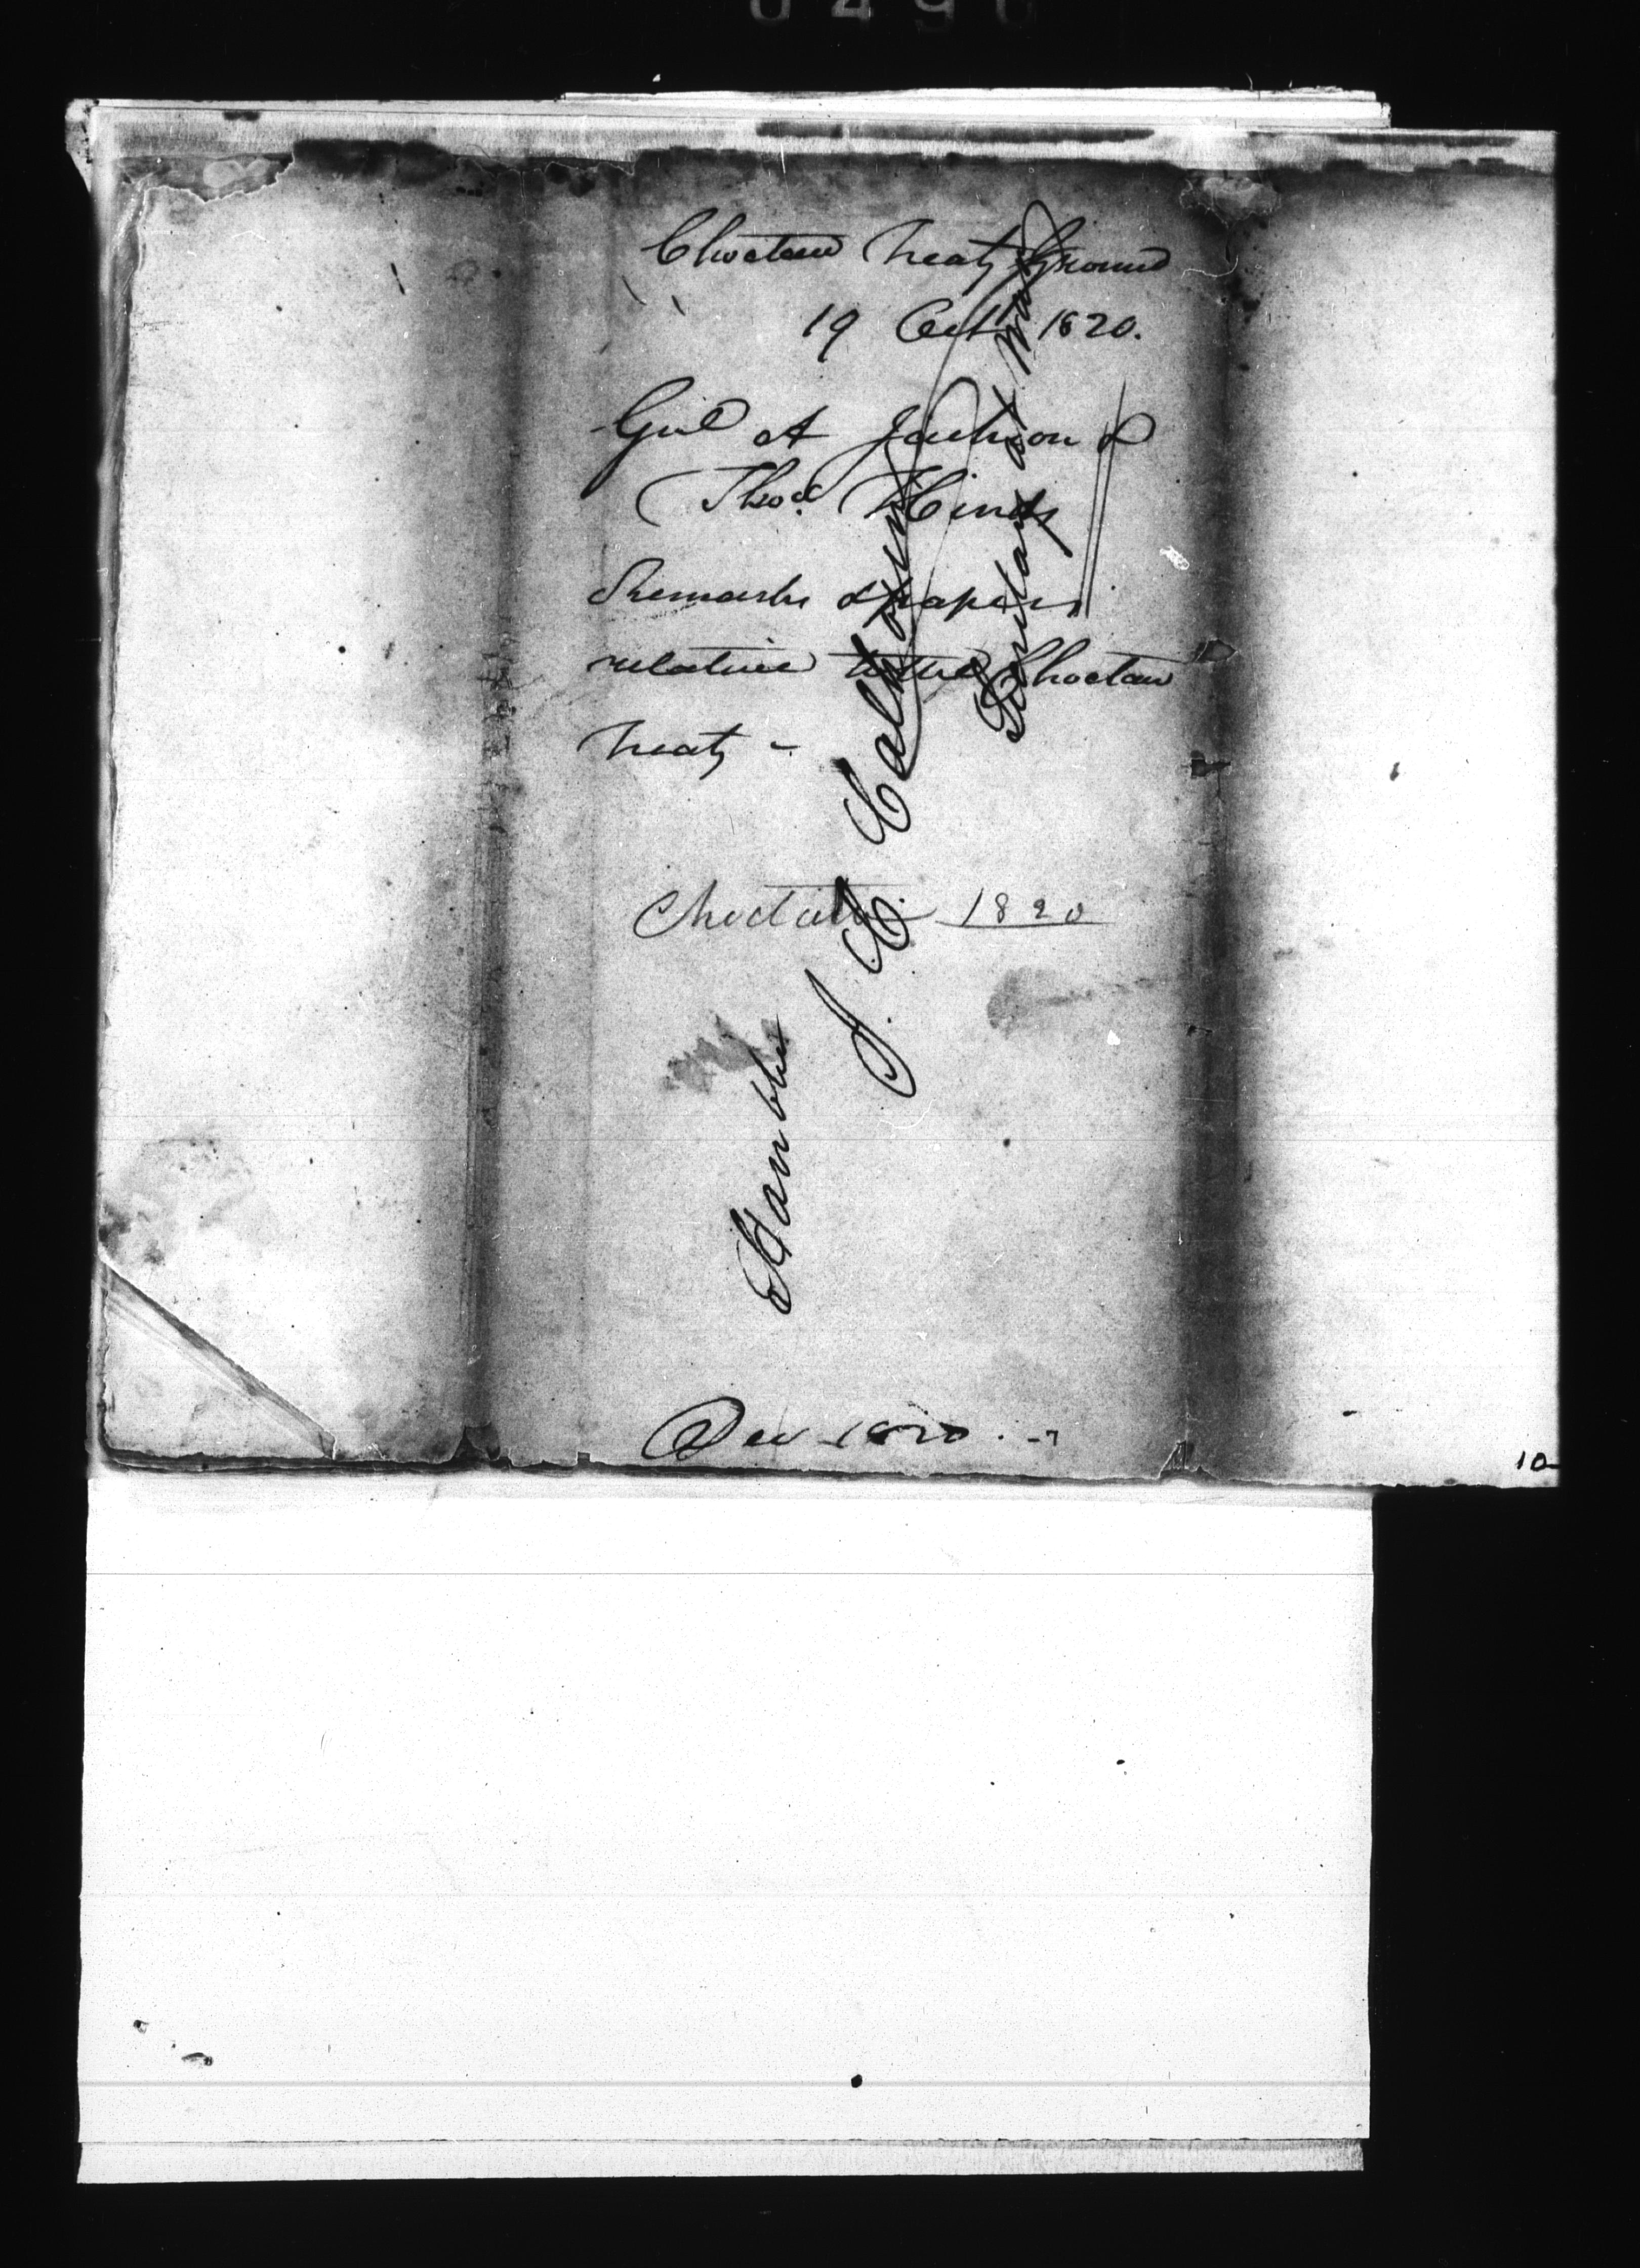 Choctaw Treaty Ground
19 Octr 1820.
Genl A Jackson &
Thos. Hinds
Remarks & papers
relative to the Choctaw
Treaty -
Choctaw 1820
Honble
J. C. Calhoun
Secretary at War
Dec 1820.
10